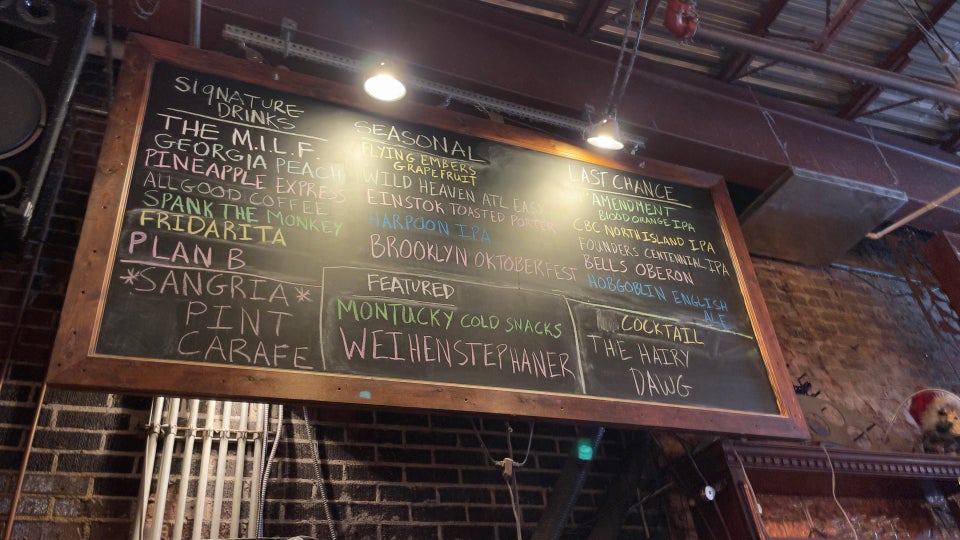 SIGNATURE
DRINKS
THE M.I.L.F.
GEORGIA PEACH
PINEAPPLE EXPRESS
ALL GOOD COFFEE
SPANK THE MONKEY
FRIDARITA
PLAN B
*SANGRIA*
PINT
CARAFE
SEASONAL
FLYING EMBERS
GRAPEFRUIT
WILD HEAVEN ATL EASY
EINSTOK TOASTED PORTER
HARPOON IPA
BROOKLYN OKTOBERFEST
FEATURED
MONTUCKY COLD SNACKS
WEIHENSTEPHANER
LAST CHANCE
AMENDMENT
BLOOD ORANGE IPA
CBC NORTH ISLAND IPA
FOUNDERS CENTENNIAL IPA
BELLS OBERON
HOBGOBLIN ENGLISH
ALE
COCKTAIL
THE HAIRY
DAWG